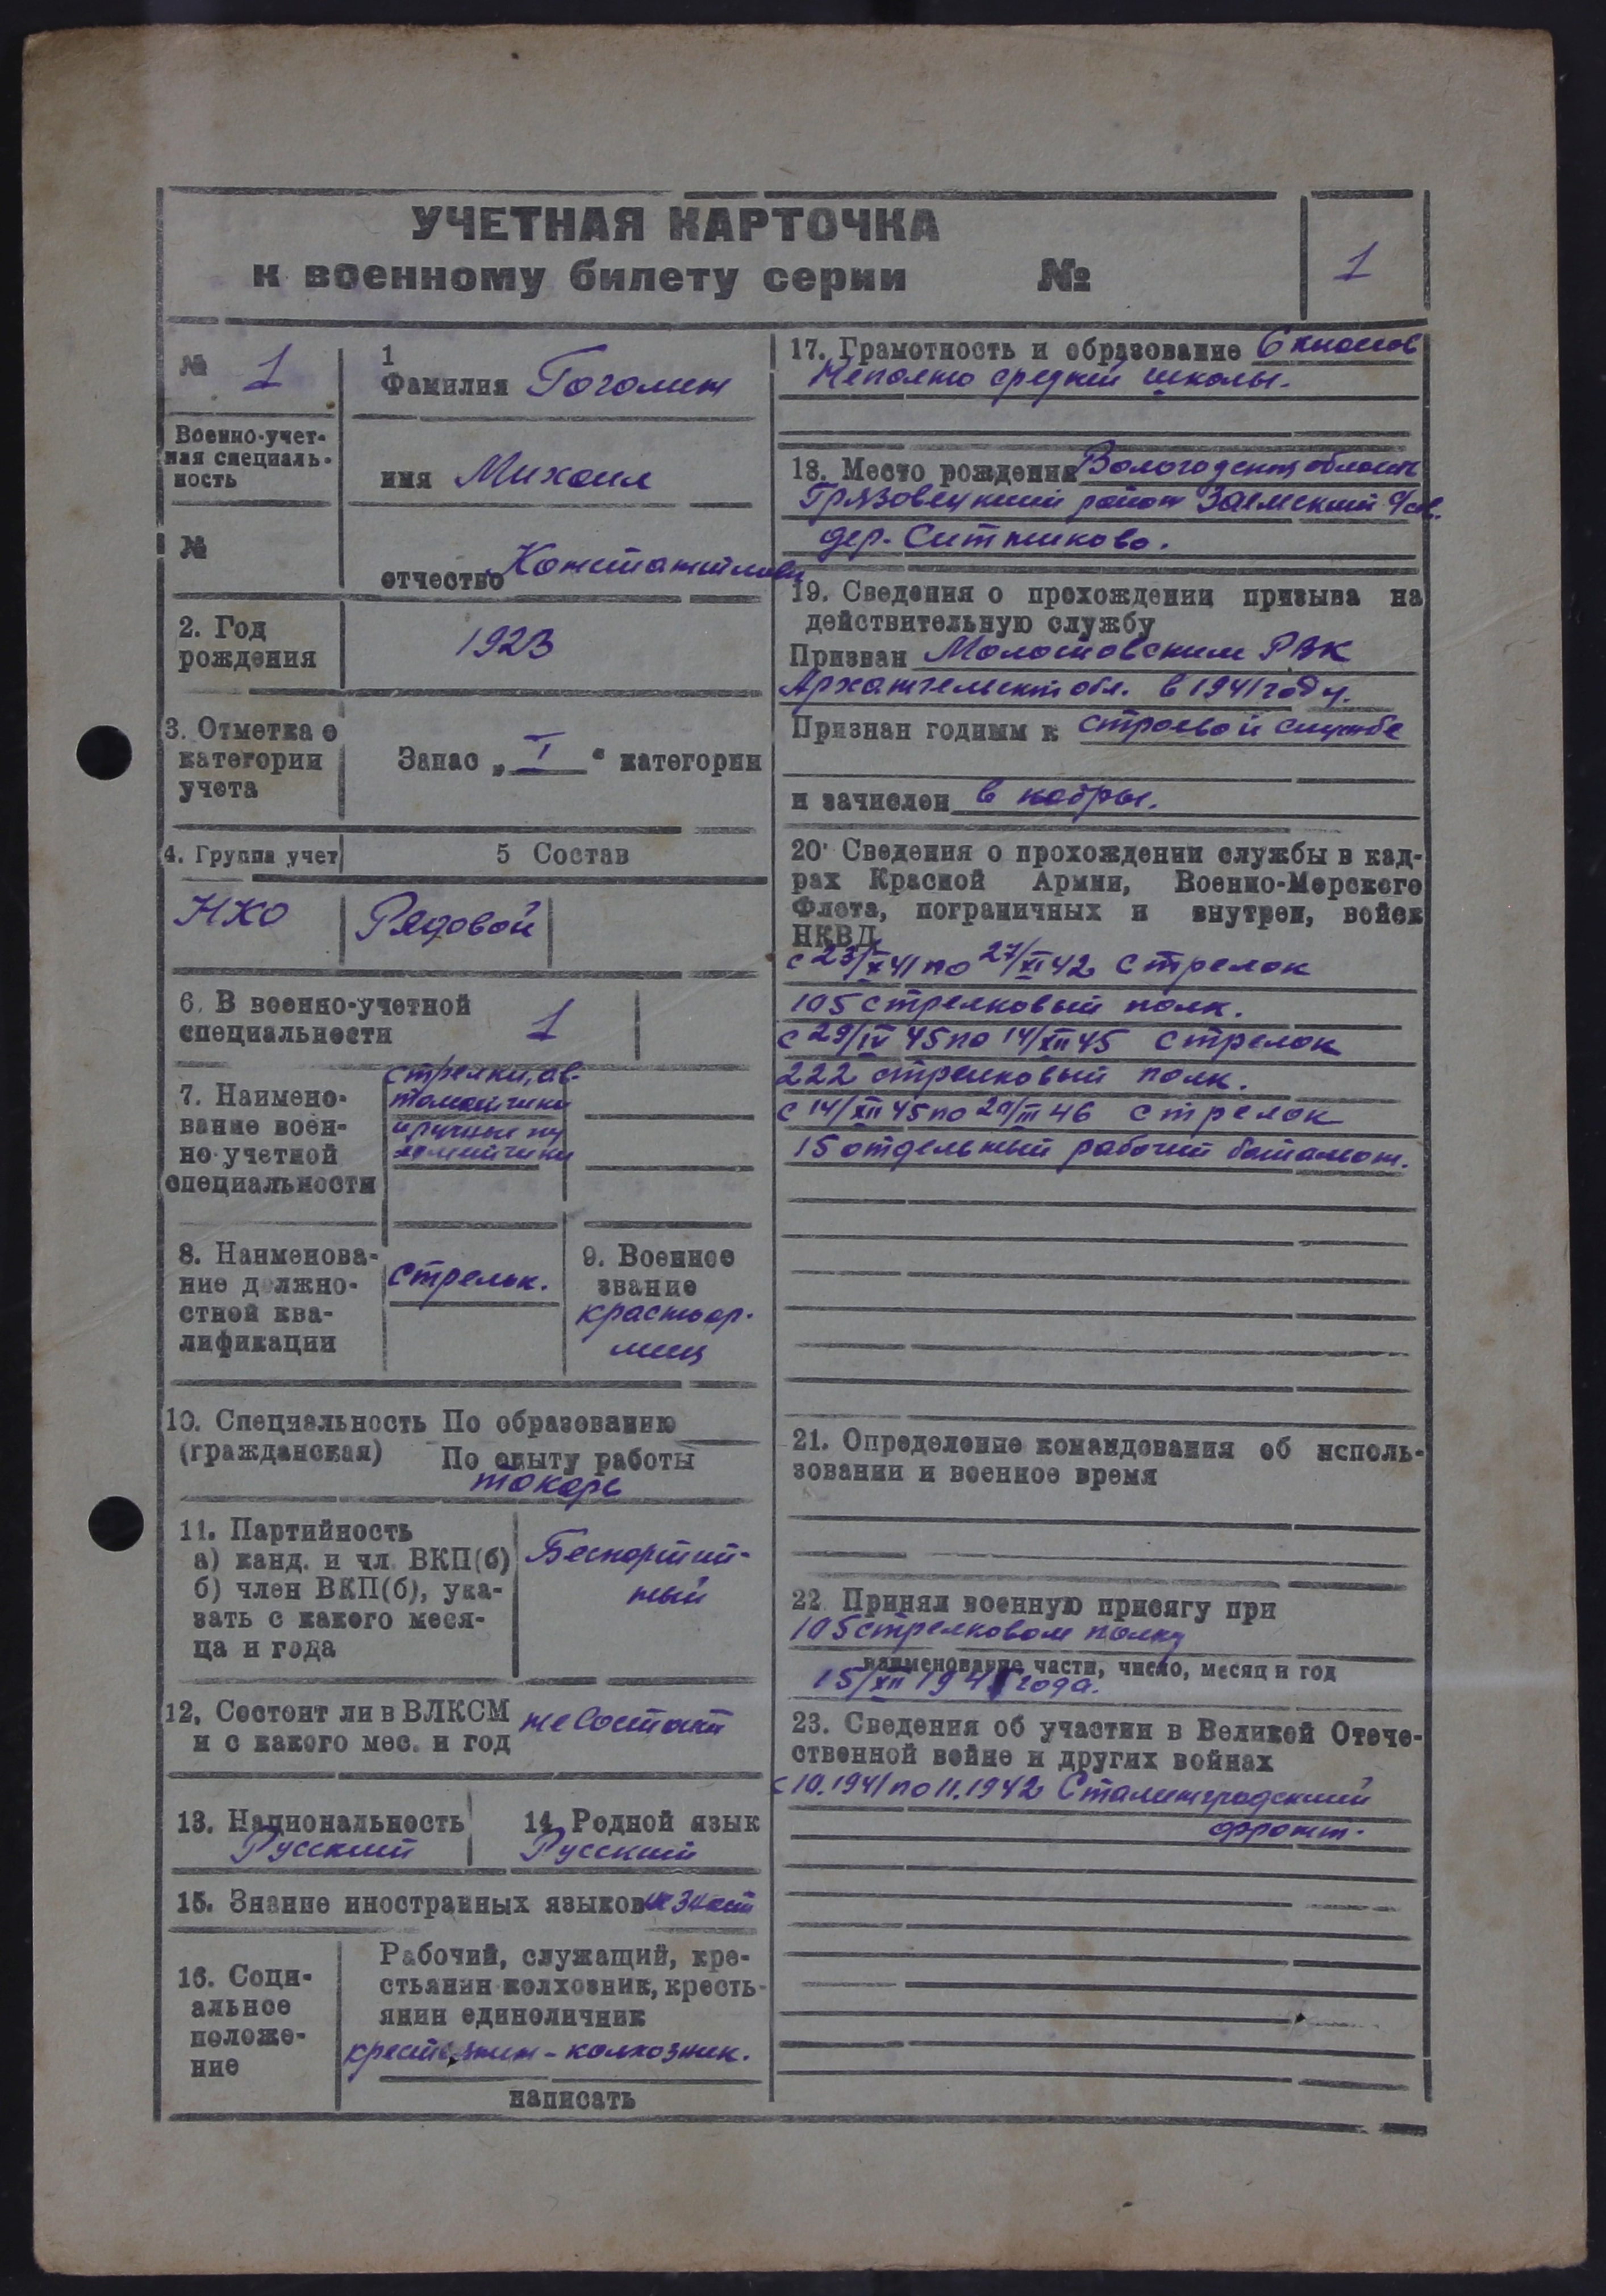 УЧЕТНАЯ КАРТОЧКА
к военному билету серии №
1
№ 1
1
Фамилия Гоголин
Военно-учет-
ная специаль-
ность
имя Михаил
№
отчество Константинович
2. Год
рождения
1923
3. Отметка о
категории
учета
Запас „ I " категории
4. Группа учет
5 Состав
НКО
Рядовой
6. В военно-учетной
специальности
1
7. Наимено-
вание воен-
но-учетной
специальности
стрелки, ав-
томатчики
и ручные пу
леметчики
8. Наименова-
ние должно-
стной ква-
лификации
стрелок.
9. Военное
звание
красноар-
меец
10. Специальность По образованию
(гражданская) По опыту работы
токарь
11. Партийность
а) канд. и чл. ВКП(б)
б) член ВКП(б), ука-
зать с какого меся-
ца и года
Беспартий-
ный
12. Состоит ли в ВЛКСМ
и с какого мес. и год
не состоит
13. Национальность
Русский
14. Родной язык
Русский
15. Знание иностранных языков не знает
16. Соци-
альное
положе-
ние
Рабочий, служащий, кре-
стьянин-колхозник, кресть-
янин единоличник
крестьянин-колхозник.
написать
17. Грамотность и образование 6 классов
Неполно средней школы.
18. Место рождения Вологодская область
Грязовецкий район Заемский с/сов.
дер. Ситниково.
19. Сведения о прохождении призыва на
действительную службу
Призван Молотовским РВК
Архангельской обл. в 1941 году.
Признан годным к строевой службе
и зачислен в кадры.
20. Сведения о прохождении службы в кад-
рах Красной Армии, Военно-Морского
Флота, пограничных и внутрен, войск
НКВД
с 23/X 41 по 27/XI 42 стрелок
105 стрелковый полк.
с 29/IV 45 по 14/XII 45 стрелок
222 стрелковый полк.
с 14/XII 45 по 20/III 46 стрелок
15 отдельный рабочий батальон.
21. Определение командования об исполь-
зовании и военное время
22. Принял военную присягу при
105 стрелковом полку
наименование части, число, месяц и год
15/XII 1941 года.
23. Сведения об участии в Великой Отече-
ственной войне и других войнах
с 10.1941 по 11.1942 Сталинградский
фронт.